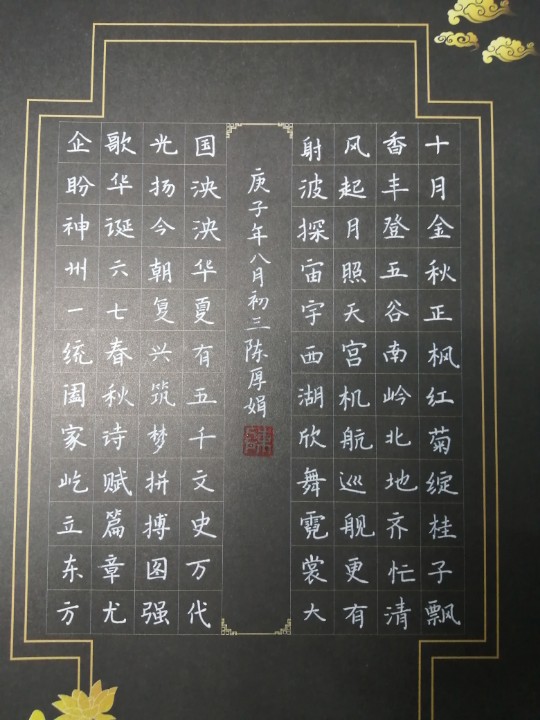 十月金秋正枫红菊绽桂子飘
香丰登五谷南岭北地齐忙清
风起月照天宫机航巡舰更有
射波探宙宇西湖欣舞霓裳大
庚子年八月初三陈厚娟
国泱泱华夏有五千文史万代
光扬今朝复兴筑梦拼搏图强
歌华诞六七春秋诗赋篇章尤
企盼神州一统阖家屹立东方